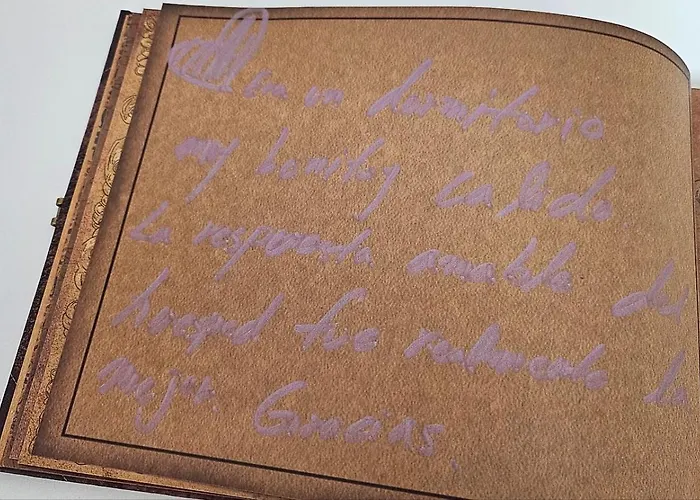 Era un dormitorio
muy bonito y calido
La respuesta amable del
huesped fue realmente la
mejor. Gracias.